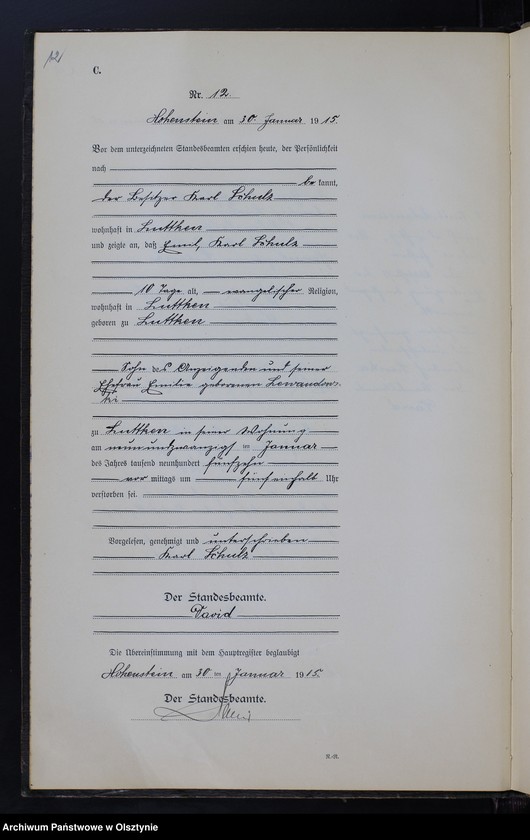 12
C.
Nr. 12.
Hohenstein am 30. Januar 1915.
Vor dem unterzeichneten Standesbeamten erschien heute, der Persönlichkeit
nach
bekannt,
der Besitzer Karl Schulz
wohnhaft in Luttken
und zeigte an, daß Emil, Karl Schulz
10 Tage alt, evangelischer Religion,
wohnhaft in Luttken
geboren zu Luttken
Sohn des Anzeigenden und seiner
Ehefrau Emilie geborenen Lewandows-
ki
zu Luttken in seiner Wohnung
am neunundzwanzigsten Januar
des Jahres tausend neunhundert fünfzehn
vor mittags um fünfeinhalb Uhr
verstorben sei.
Vorgelesen, genehmigt und unterschrieben
Karl Schulz
Der Standesbeamte.
David
Die Übereinstimmung mit dem Hauptregister beglaubigt
Hohenstein am 30 ten Januar 1915.
Der Standesbeamte.
R.-R.
Archiwum Państwowe w Olsztynie